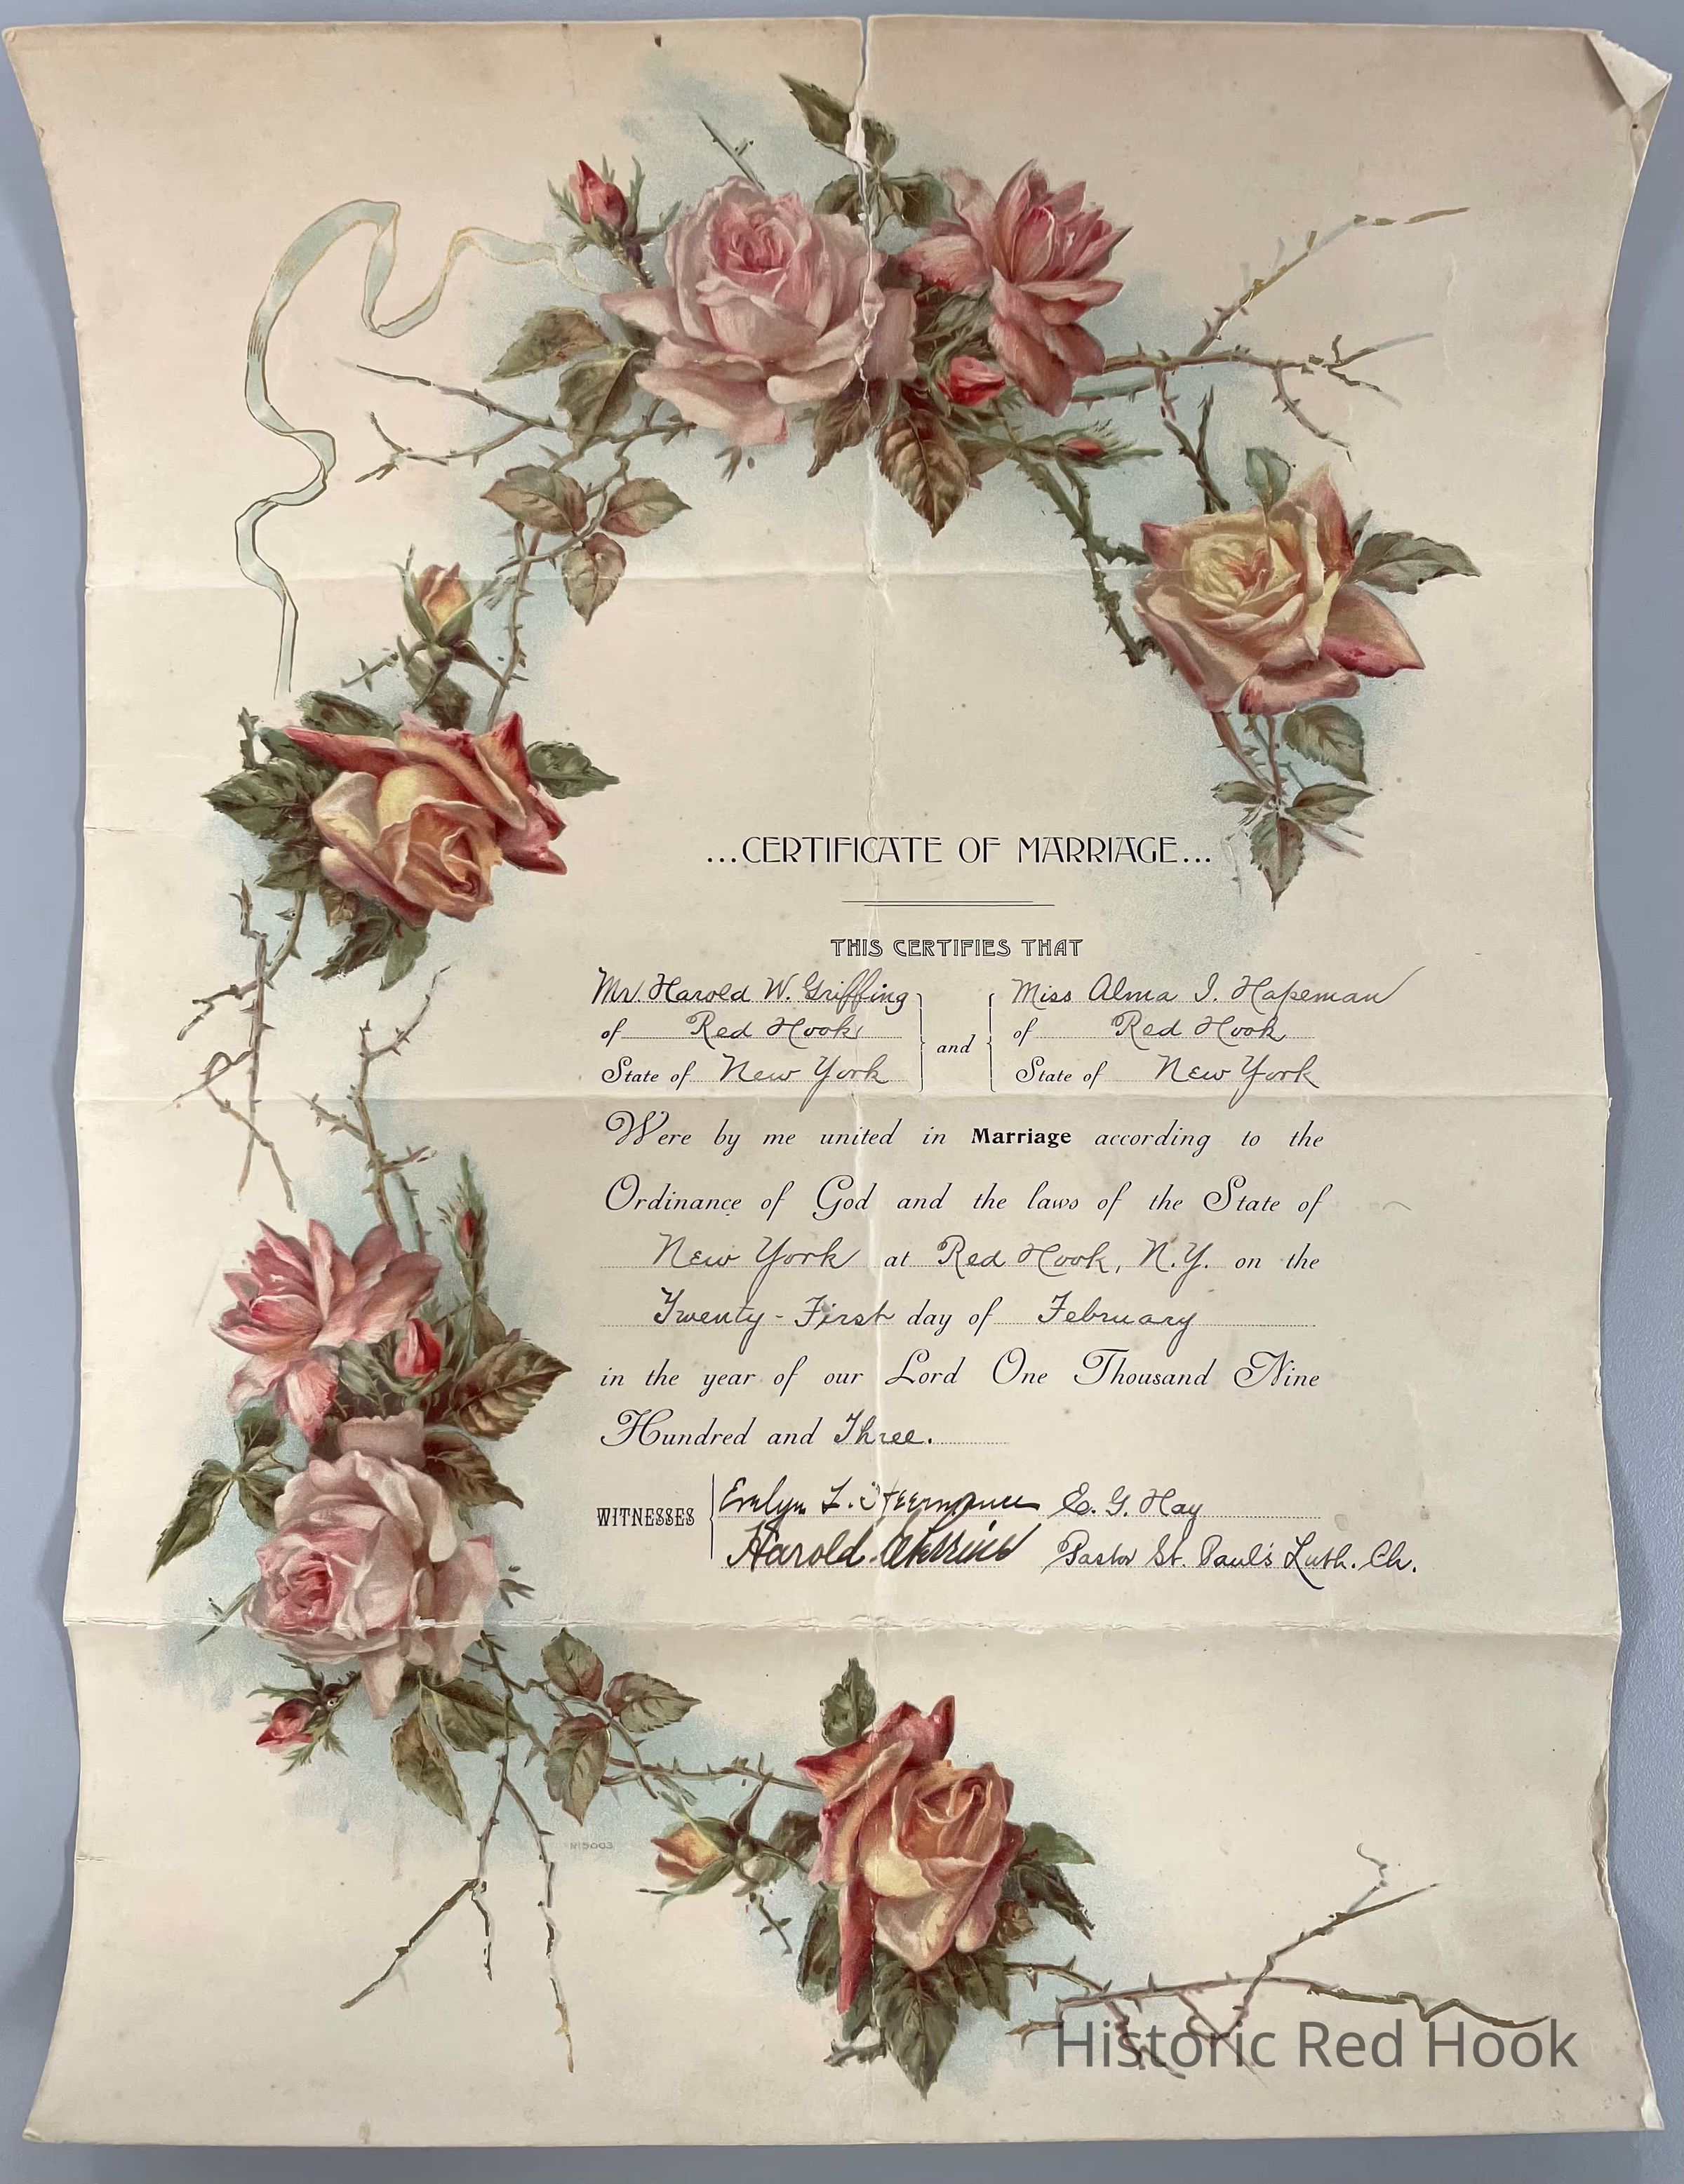 ...CERTIFICATE OF MARRIAGE...
THIS CERTIFIES THAT
Mr. Harold W. Griffing and Miss Alma I. Hapeman
of Red Hook of Red Hook
State of New York State of New York
Were by me united in Marriage according to the
Ordinance of God and the laws of the State of
New York at Red Hook, N.Y. on the
Twenty-First day of February
in the year of our Lord One Thousand Nine
Hundred and Three.
WITNESSES
Evelyn L. E. G. Hay
Harold Pastor St. Paul's Luth. Ch.
No 5003
Historic Red Hook